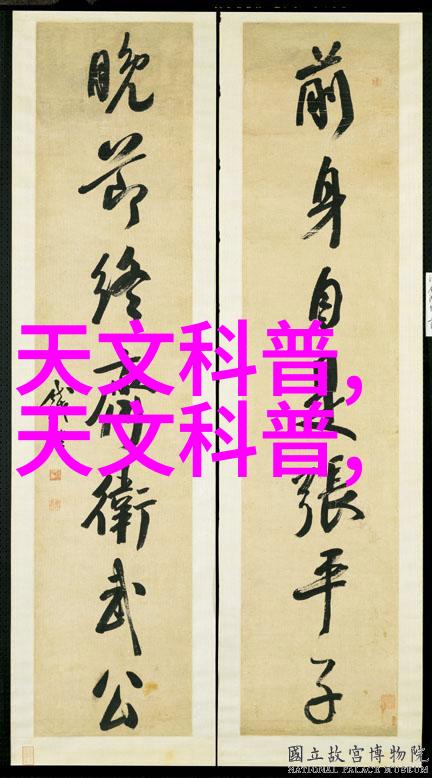 前身自是張平子
晚節終齊衛武公
天文科普,
天文科普,
國立故宮博物院
NATIONAL PALACE MUSEUM